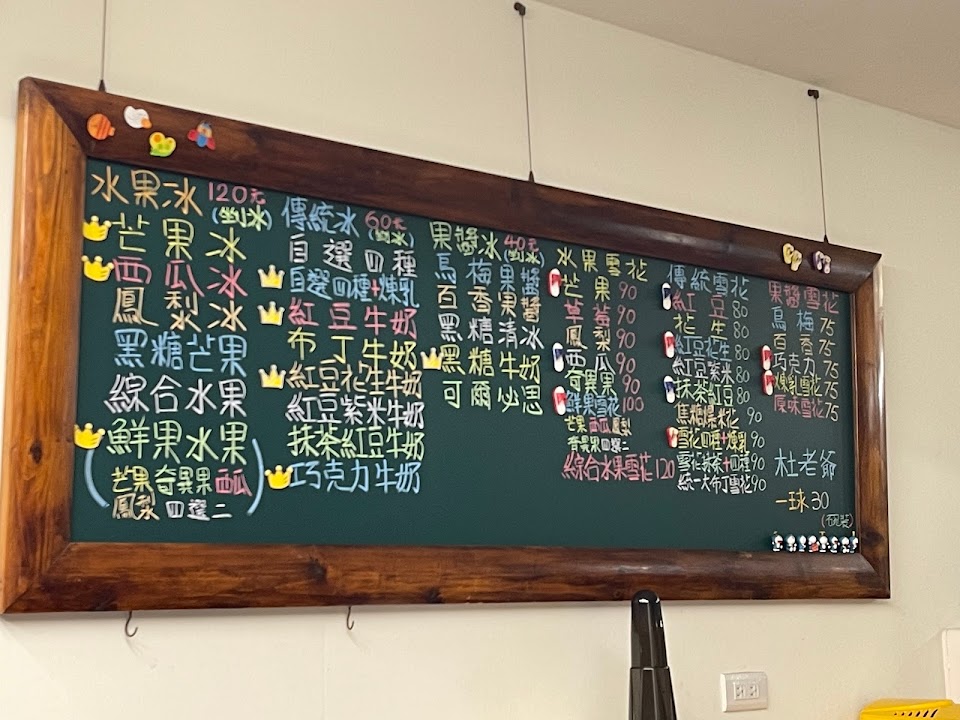 水果冰 120元
(剉冰)
芒果冰
西瓜冰
鳳梨冰
黑糖芒果
綜合水果
鮮果水果
(芒果奇異果西瓜
鳳梨四選二)
傳統冰 60元
(剉冰)
自選四種
自選四種+煉乳
紅豆牛奶
布丁牛奶
紅豆花生牛奶
紅豆紫米牛奶
抹茶紅豆牛奶
巧克力牛奶
果醬冰 40元
(剉冰)
烏梅果醬
百香果醬
黑糖清冰
黑糖牛奶
可爾必思
水果雪花
芒果 90
草莓 90
鳳梨 90
西瓜 90
奇異果 90
鮮果雪花 100
芒果西瓜鳳梨
奇異果四選二
綜合水果雪花 120
傳統雪花
紅豆 80
花生 80
紅豆花生 80
紅豆紫米 80
抹茶紅豆 80
焦糖爆米花 90
雪花四種+煉乳 90
雪花抹茶+四種 90
統一大布丁雪花 90
果醬雪花
烏梅 75
百香 75
巧克力 75
煉乳雪花 75
原味雪花 75
杜老爺
一球 30